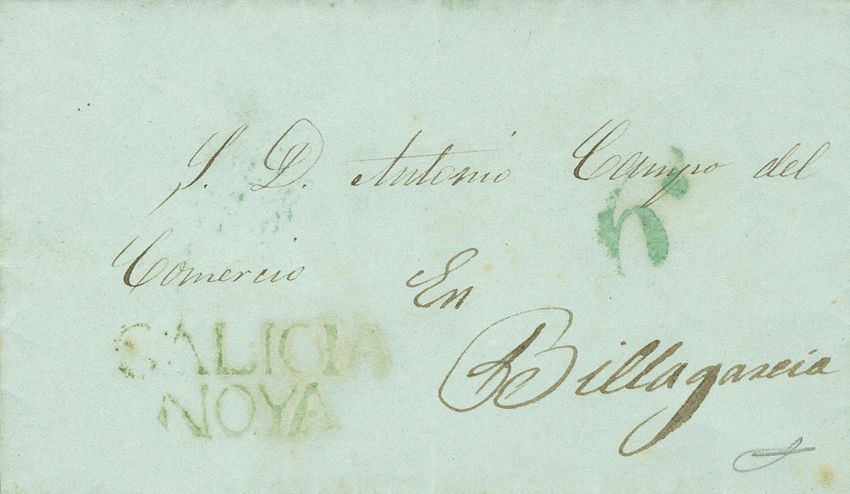 S. D. Antonio Campo del
6
Comercio
En
GALICIA
NOYA
Billagarcia